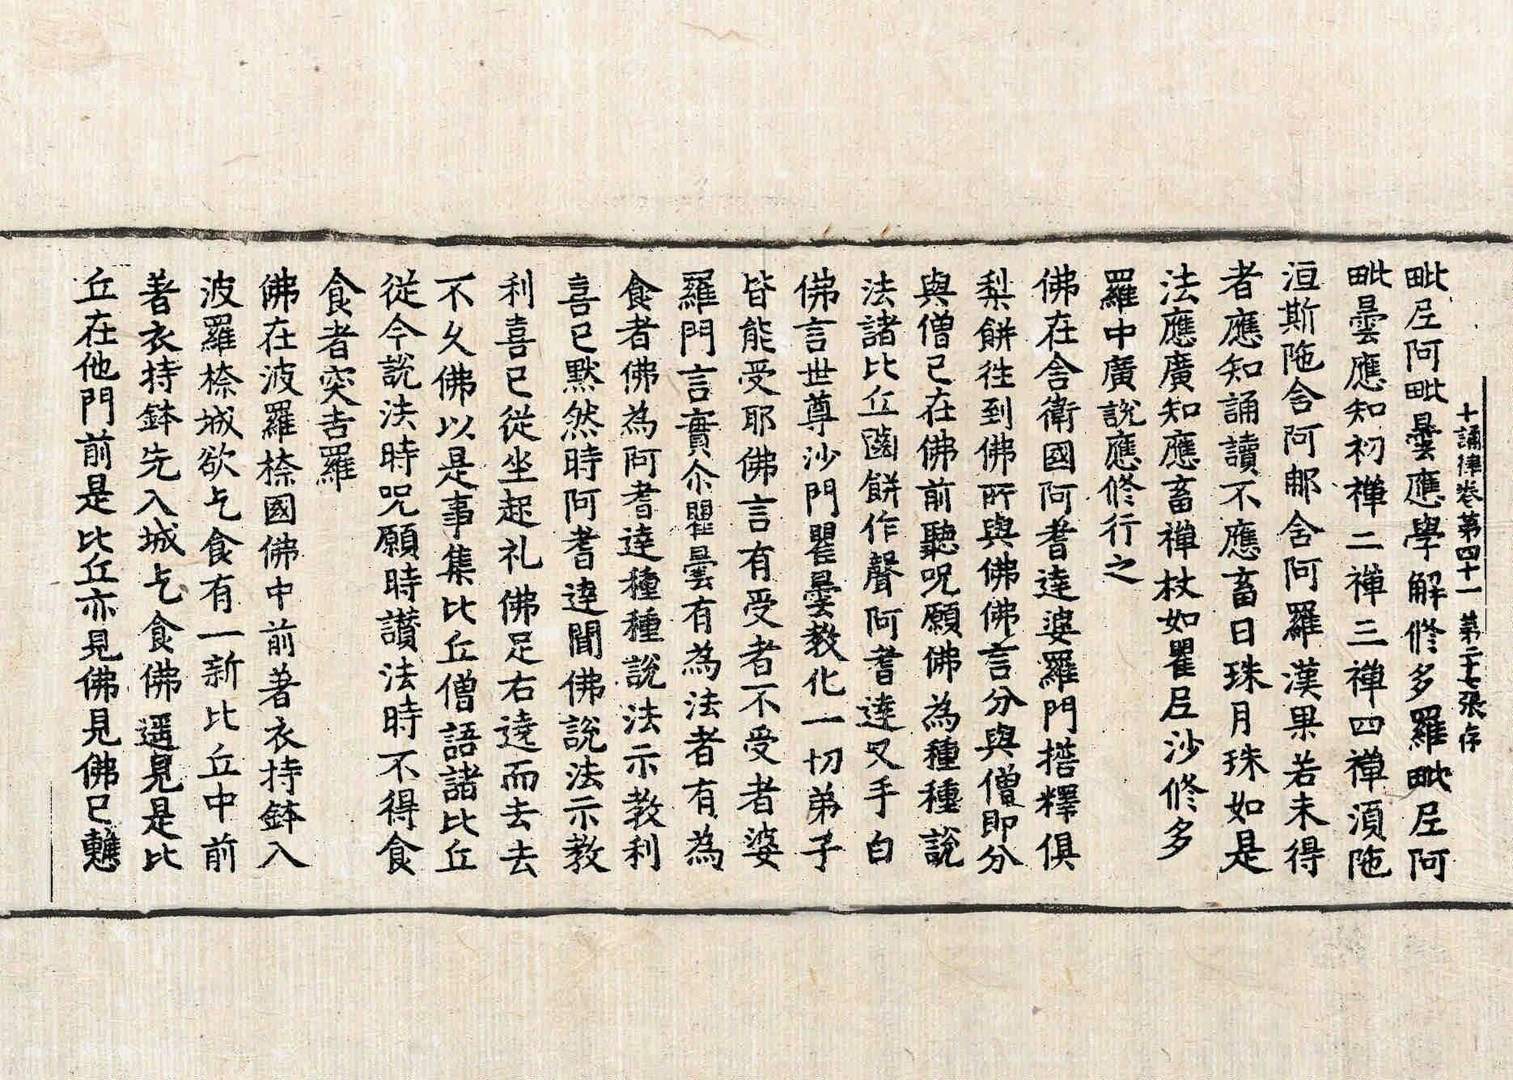 十誦律卷第四十一　第二十七張存
毗尼阿毗曇應學解修多羅毗尼阿
毗曇應知初禪二禪三禪四禪湏陁
洹斯陁含阿那含阿羅漢果若未得
者應知誦讀不應畜日珠月珠如是
法應廣知應畜禪杖如瞿尼沙修多
羅中廣說應修行之
佛在舍衛國阿耆達婆羅門㨂釋俱
梨餅往到佛所與佛佛言分與僧即分
與僧已在佛前聽呪願佛為種種說
法諸比丘齧餅作聲阿耆達叉手白
佛言世尊沙門瞿曇教化一切弟子
皆能受耶佛言有受者不受者婆
羅門言實尒瞿曇有為法者有為
食者佛為阿耆達種種說法示教利
喜已默然時阿耆達聞佛說法示教
利喜已從坐起礼佛足右遶而去去
不久佛以是事集比丘僧語諸比丘
從今說法時呪願時讃法時不得食
食者突吉羅
佛在波羅㮈國佛中前著衣持鉢入
波羅㮈城欲乞食有一新比丘中前
著衣持鉢先入城乞食佛遥見是比
丘在他門前是比丘亦見佛見佛已